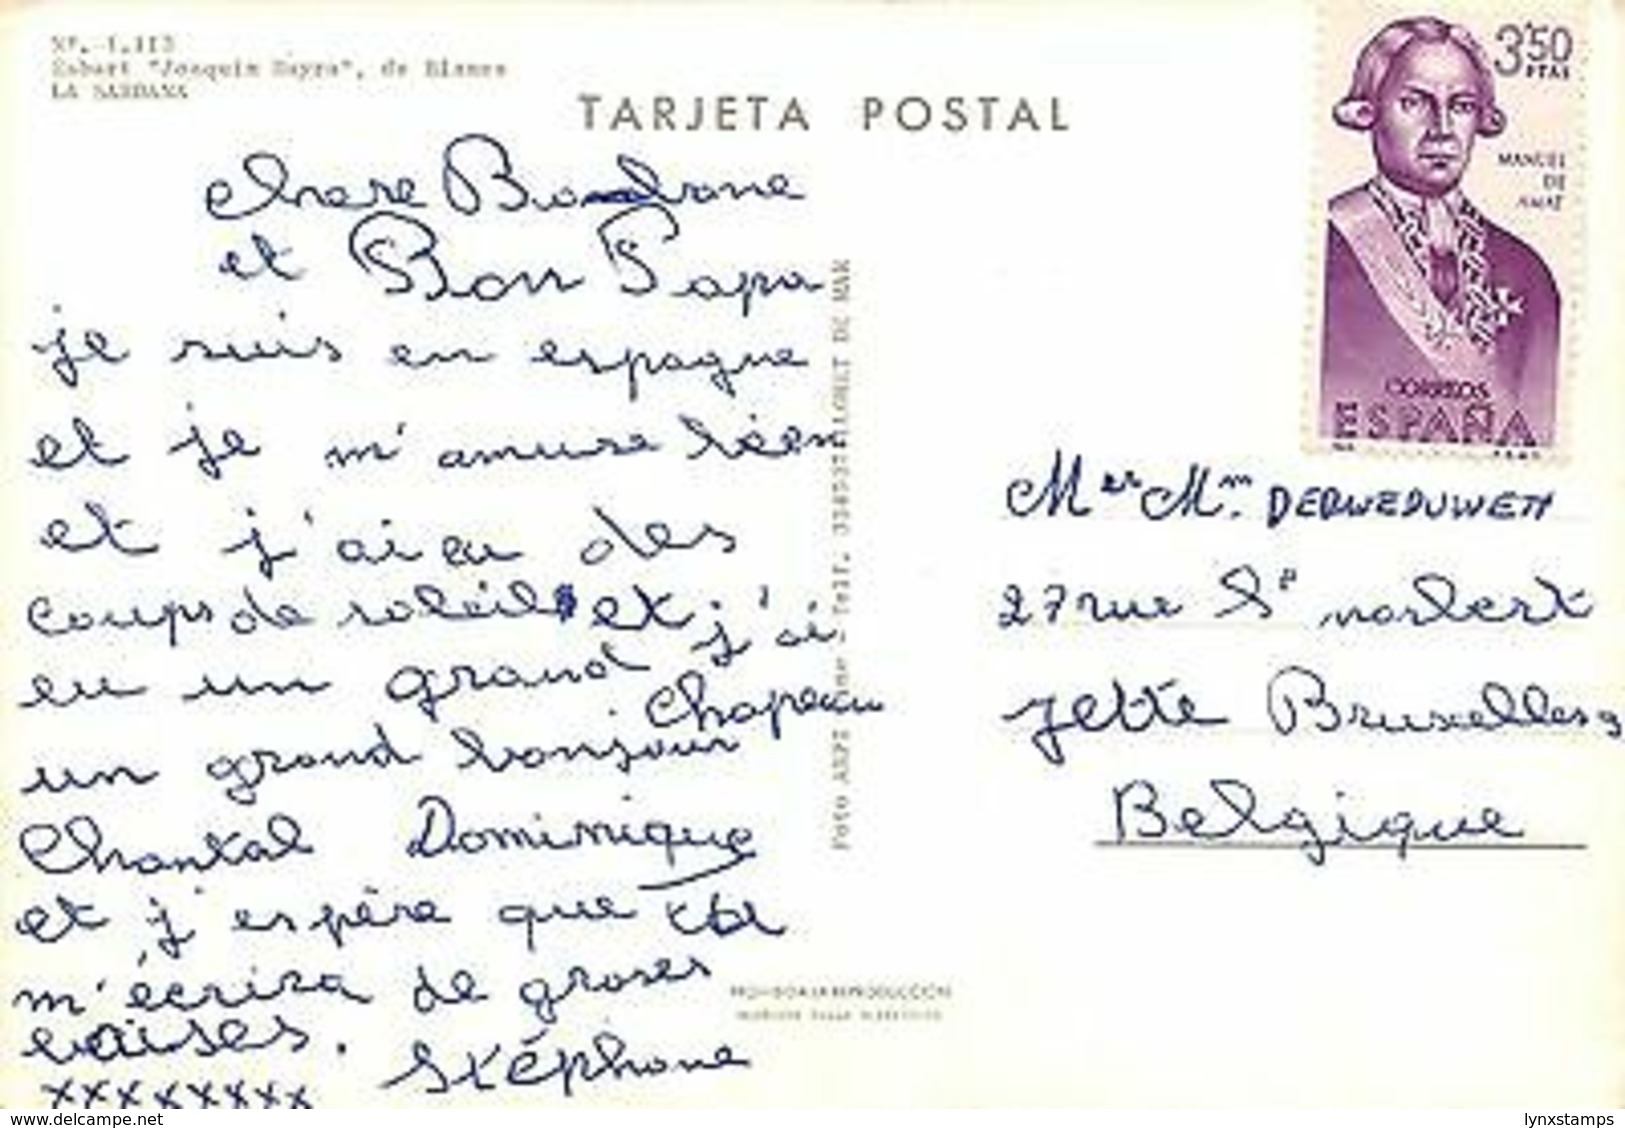 Nº. 1.113
Esbart "Joaquim Ruyra", de Blanes
LA SARDANA
TARJETA POSTAL
3'50
PTAS
MANUEL
DE
AMAT
CORREOS
ESPAÑA
chere
et Bon Papa
je suis en espagne
et je m'amuse bien
et j'ai eu des
coups de soleil et j'ai
eu un grand chapeau
un grand bonjour
Chantal Dominique
et j'espère que tu
m'écrira de groses
baises. Stéphane
xxxxxxxx
Foto ARPI
Telf. 334537 LLORET DE MAR
Mr Mm.
27 rue St norbert
Jette Bruxelles 9
Belgique
PROHIBIDA LA REPRODUCCIÓN
delcampe.net
lynxstamps